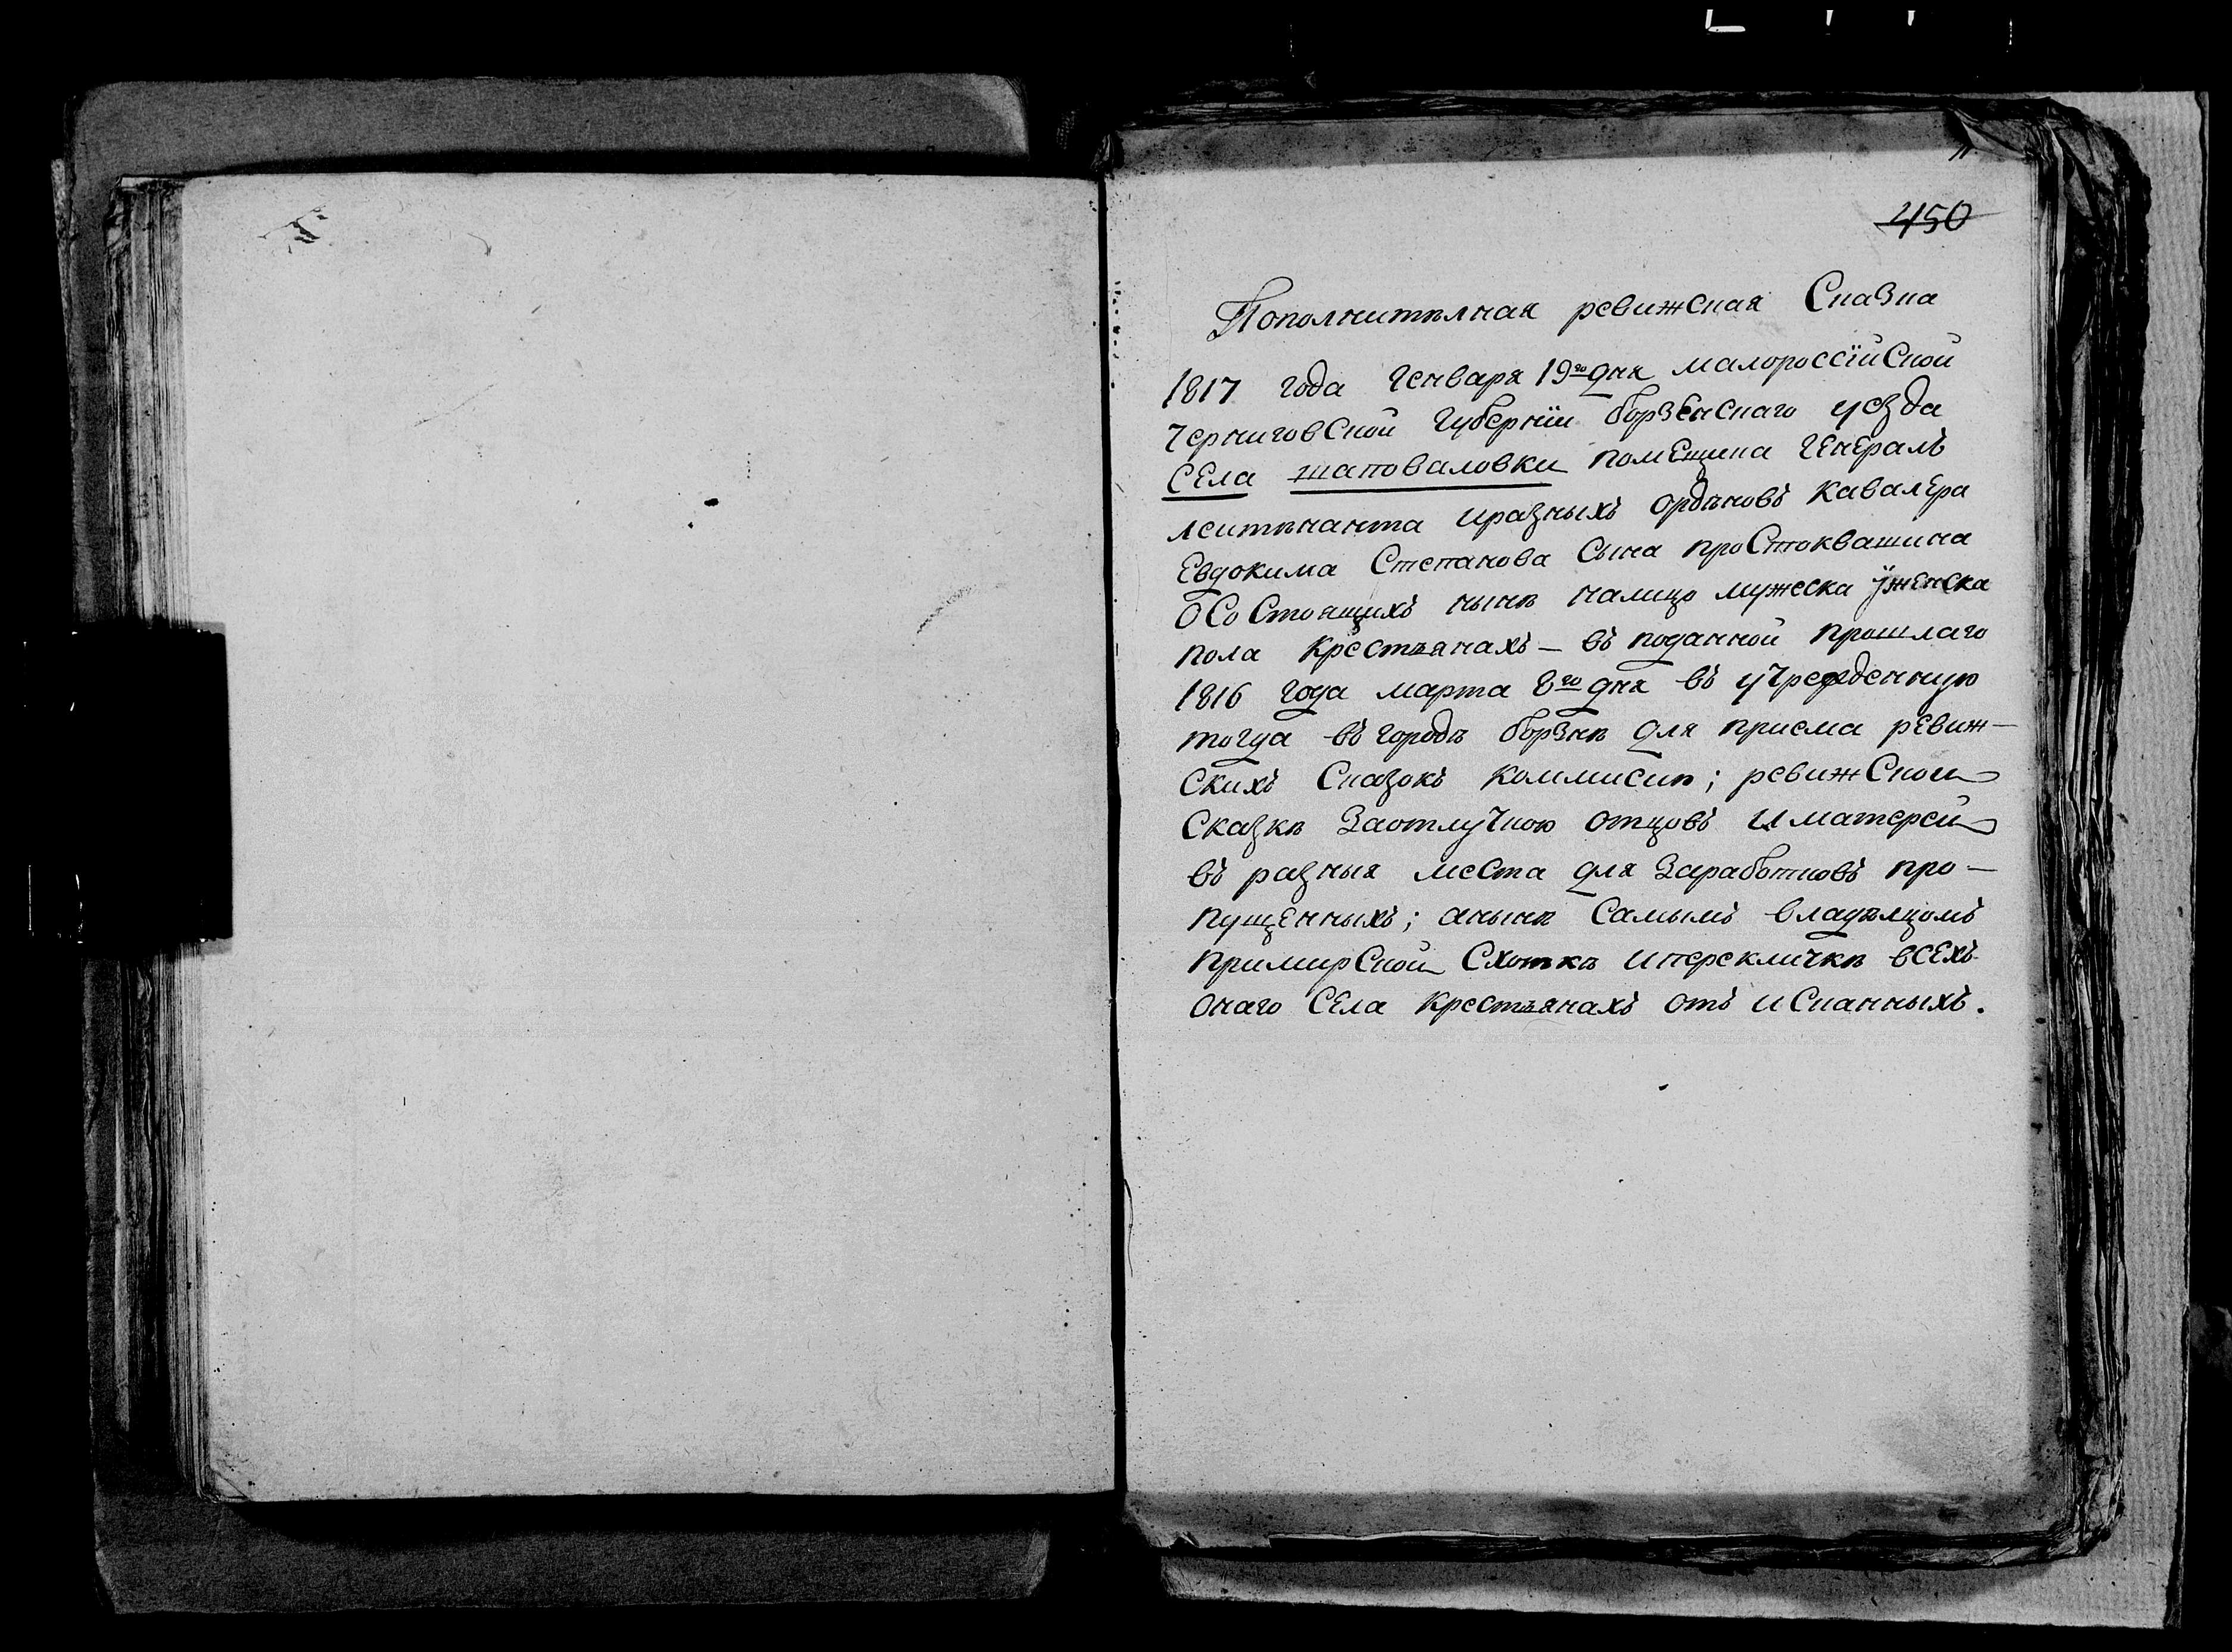 450
Пополнителная ревижская Сказка
1817 года Генваря 19го дня малороссїйской
Черниговской Губернїи борзенскаго уезда
Села шаповаловки помещика Генералъ
лейтѣнанта и разныхъ ордѣновъ кавалера
Евдокима Степанова Сына простоквашина
о Состоящихъ нынѣ налицо мужеска ї женска
пола крестьянахъ — въ поданной прошлаго
1816 года марта 8го дня въ учрежденную
тогда въ городѣ борзнѣ для приема ревиж—
скихъ Сказокъ коммисию; ревижской
Сказкѣ За отлучкою отцовъ и матерей
въ разныя места для Заработковъ про—
пущенныхъ; а нынѣ Самымъ владѣлцомъ
при мирской Сходкѣ и перекличкѣ всехъ
онаго Села крестьянахъ отъ исканныхъ.